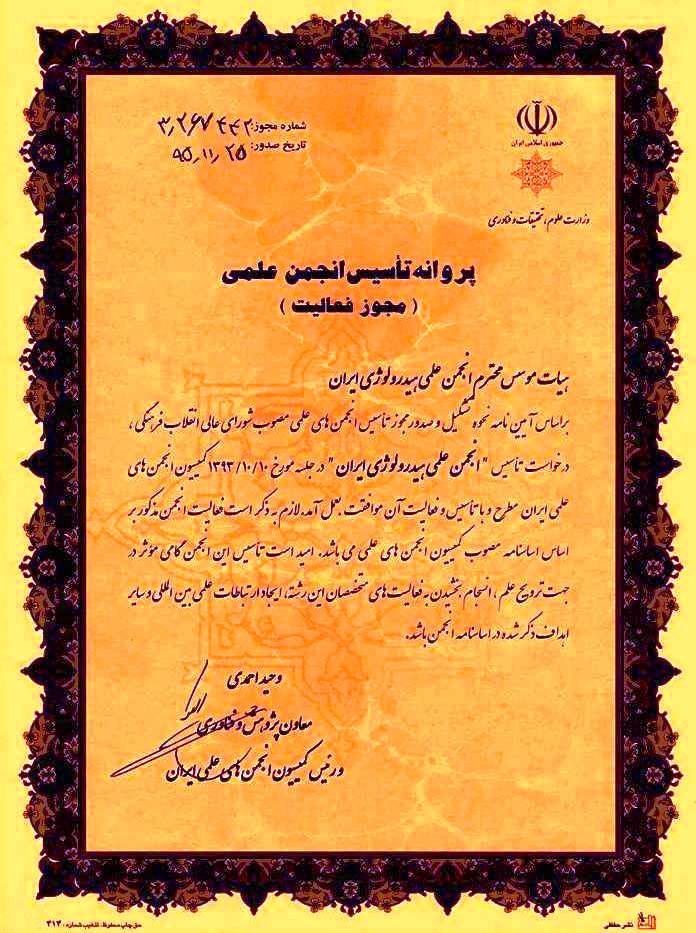 جمهوری اسلامی ایران
وزارت علوم، تحقیقات و فناوری
شماره مجوز: ۳٫۲۶۷۴۴۲
تاریخ صدور: ۹۵٫۱۱٫۲۵
پروانه تأسیس انجمن علمی
( مجوز فعالیت )
هیات موسس محترم انجمن علمی هیدرولوژی ایران
براساس آیین نامه نحوه تشکیل و صدور مجوز تأسیس انجمن های علمی مصوب شورای عالی انقلاب فرهنگی ،
درخواست تأسیس "انجمن علمی هیدرولوژی ایران" در جلسه مورخ ۱۳۹۳/۱۰/۱۰ کمیسیون انجمن های
علمی ایران مطرح و با تأسیس و فعالیت آن موافقت بعمل آمد. لازم به ذکر است فعالیت انجمن مذکور بر
اساس اساسنامه مصوب کمیسیون انجمن های علمی می باشد. امید است تأسیس این انجمن گامی مؤثر در
جهت ترویج علم ، انسجام بخشیدن به فعالیت های متخصصان این رشته، ایجاد ارتباطات علمی بین المللی و سایر
اهداف ذکر شده در اساسنامه انجمن باشد.
وحید احمدی
معاون پژوهش و فناوری
و رئیس کمیسیون انجمن های علمی ایران
نشر حافظی
حق چاپ محفوظ. تذهیب شماره: ۴۱۴